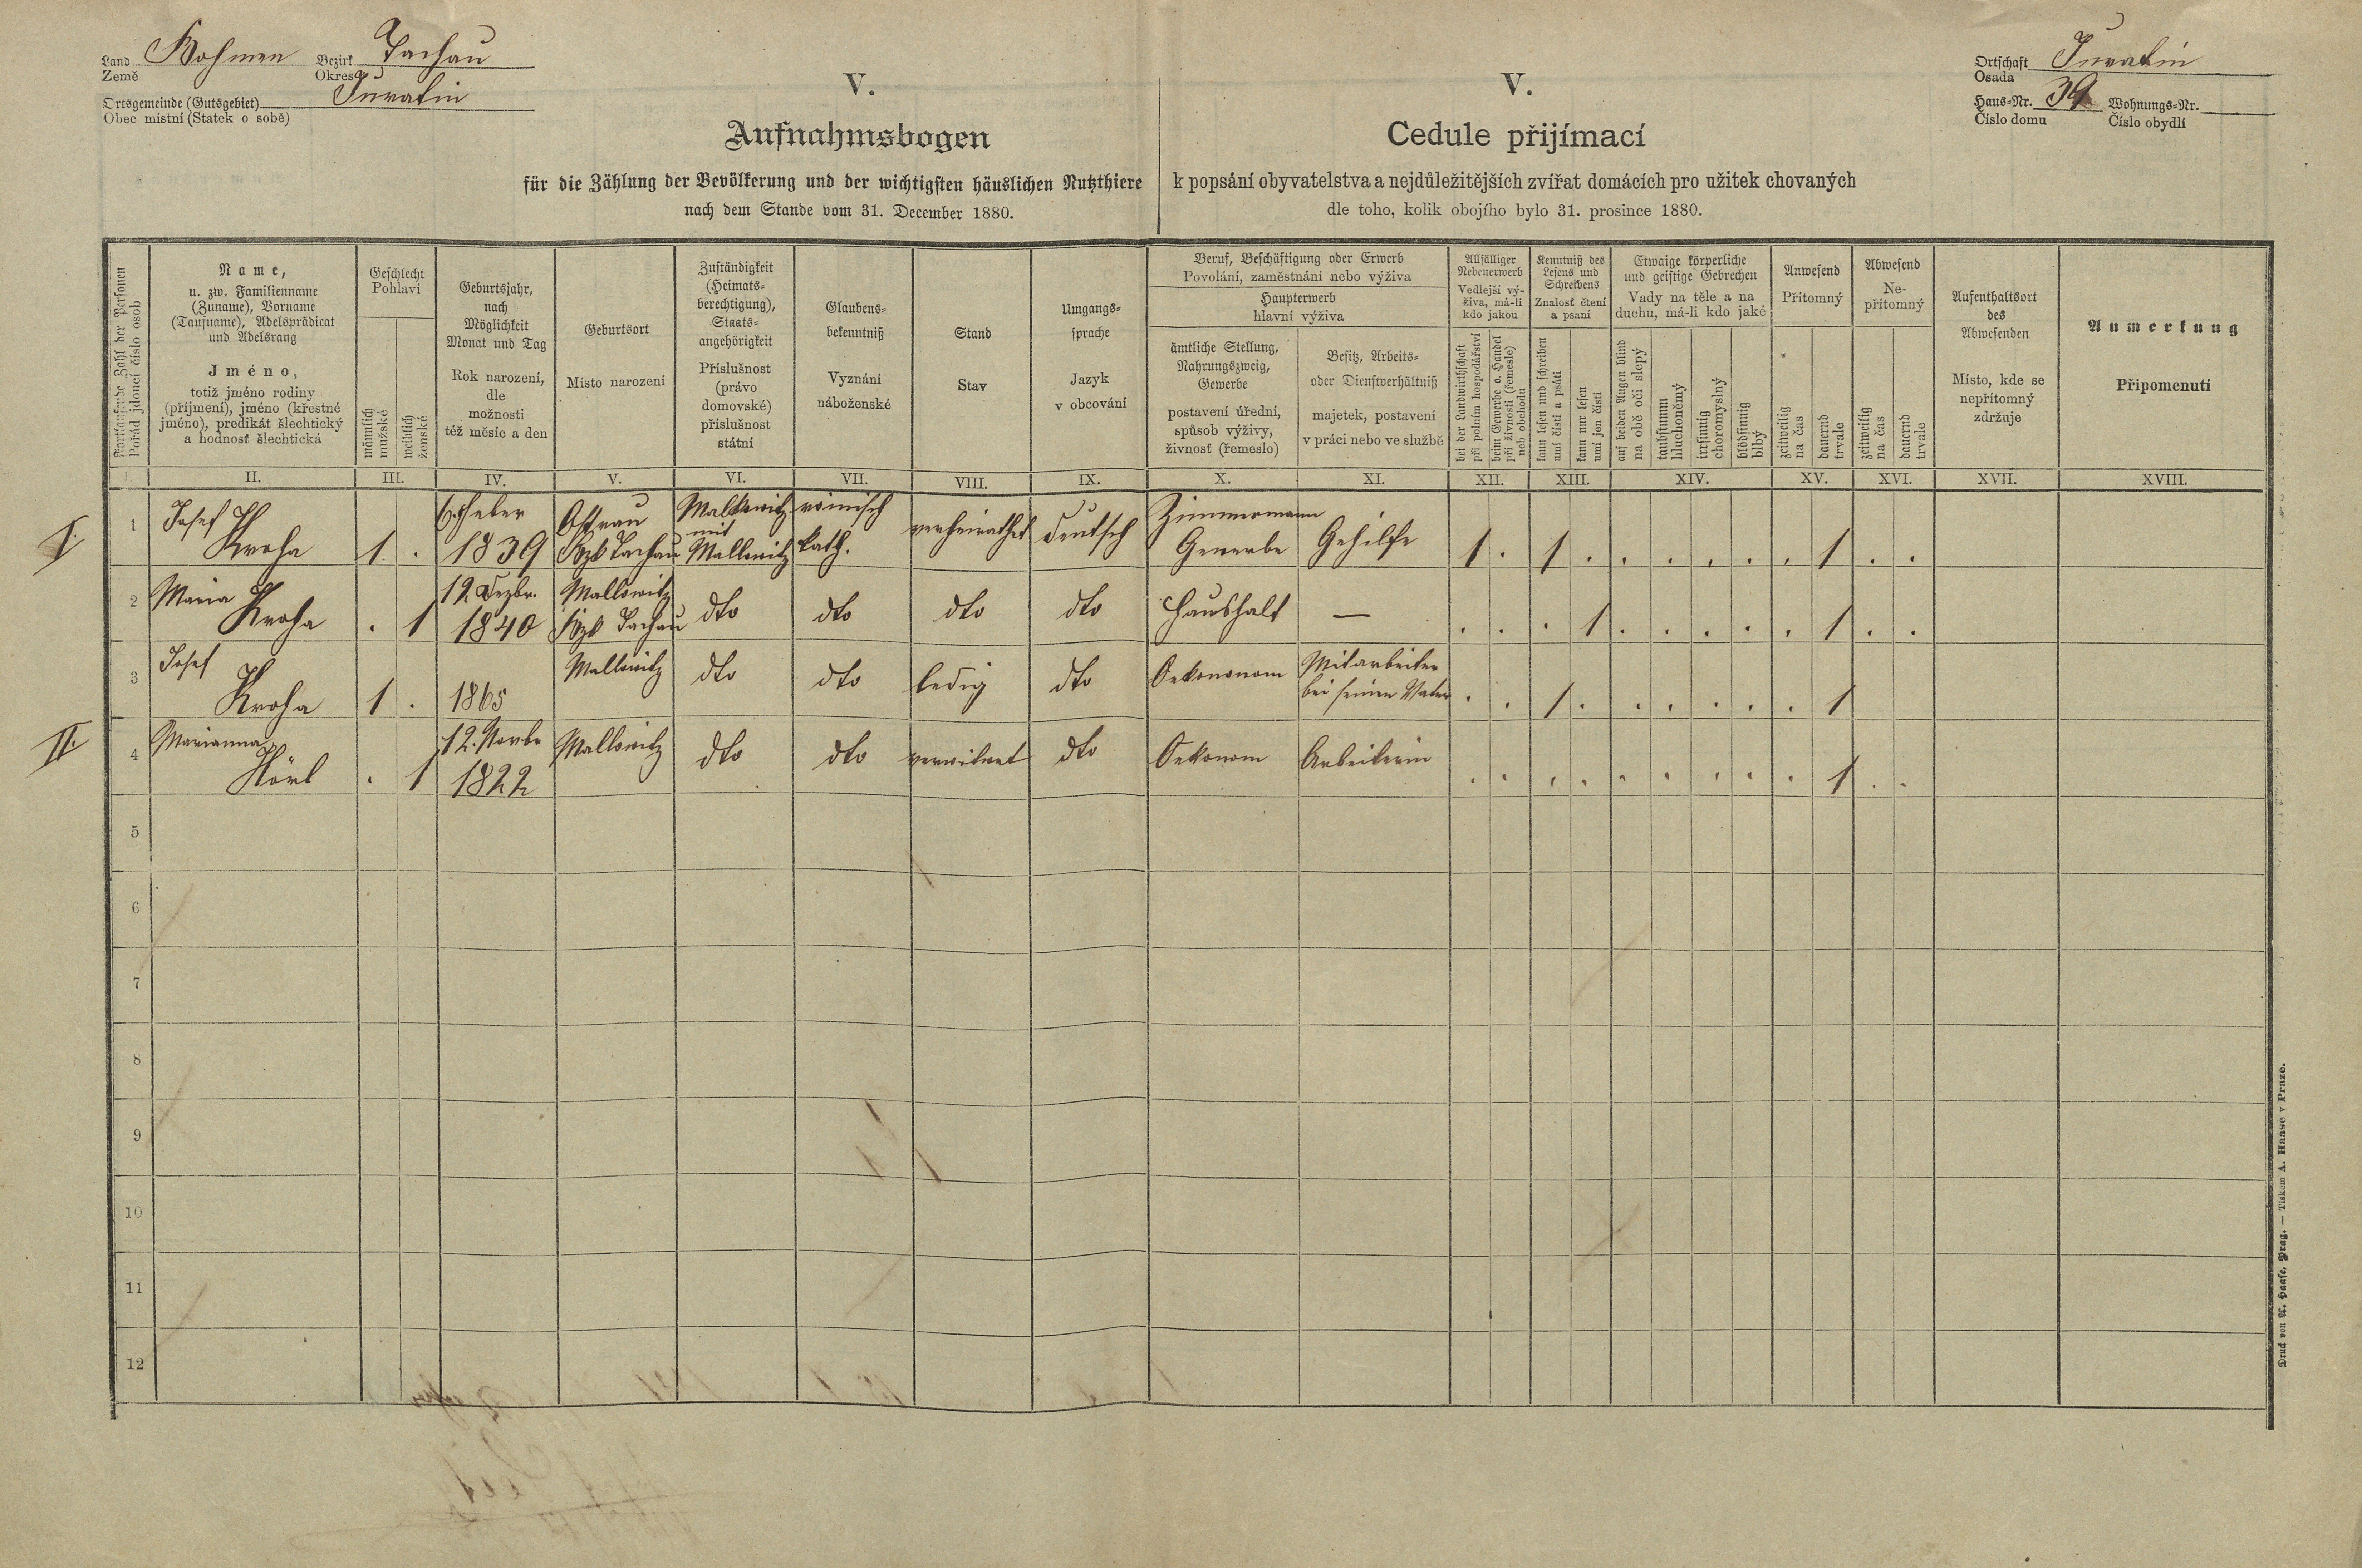 Land Böhmen Bezirk Tachau
Země Okres
Ortsgemeinde (Gutsgebiet) Juratin
Obec místní (Statek o sobě)
Ortschaft Juratin
Osada
Haus-Nr. 39 Wohnungs-Nr.
Číslo domu Číslo obydlí
V.
Aufnahmsbogen
für die Zählung der Bevölkerung und der wichtigsten häuslichen Nutzthiere
nach dem Stande vom 31. December 1880.
V.
Cedule přijímací
k popsání obyvatelstva a nejdůležitějších zvířat domácích pro užitek chovaných
dle toho, kolik obojího bylo 31. prosince 1880.
Fortlaufende Zahl der Personen
Pořád jdoucí číslo osob
Name,
u. zw. Familienname
(Zuname), Vorname
(Taufname), Adelsprädicat
und Adelsrang
Jméno,
totiž jméno rodiny
(příjmení), jméno (křestné
jméno), predikát šlechtický
a hodnosť šlechtická
Geschlecht
Pohlaví
männlich
mužské
weiblich
ženské
Geburtsjahr,
nach
Möglichkeit
Monat und Tag
Rok narození,
dle
možnosti
též měsíc a den
Geburtsort
Místo narození
Zuständigkeit
(Heimats-
berechtigung),
Staats-
angehörigkeit
Příslušnost
(právo
domovské)
příslušnost
státní
Glaubens-
bekenntniß
Vyznání
náboženské
Stand
Stav
Umgangs-
sprache
Jazyk
v obcování
Beruf, Beschäftigung oder Erwerb
Povolání, zaměstnání nebo výživa
Haupterwerb
hlavní výživa
ämtliche Stellung,
Nahrungszweig,
Gewerbe
postavení úřední,
spůsob výživy,
živnosť (řemeslo)
Besitz, Arbeits-
oder Dienstverhältniß
majetek, postavení
v práci nebo ve službě
Allfälliger
Nebenerwerb
Vedlejší vý-
živa, má-li
kdo jakou
bei der Landwirthschaft
při polním hospodářství
beim Gewerbe o. Handel
při živnosti (řemesle)
neb obchodu
Kenntniß des
Lesens und
Schreibens
Znalosť čtení
a psaní
kann lesen und schreiben
umí čísti a psáti
kann nur lesen
umí jen čísti
Etwaige körperliche
und geistige Gebrechen
Vady na těle a na
duchu, má-li kdo jaké
auf beiden Augen blind
na obě oči slepý
taubstumm
hluchoněmý
irrsinnig
choromyslný
blödsinnig
blbý
Anwesend
Přítomný
zeitweilig
na čas
dauernd
trvale
Abwesend
Ne-
přítomný
zeitweilig
na čas
dauernd
trvale
Aufenthaltsort
des
Abwesenden
Místo, kde se
nepřítomný
zdržuje
Anmerkung
Připomenutí
II. III. IV. V. VI. VII. VIII. IX. X. XI. XII. XIII. XIV. XV. XVI. XVII. XVIII.
I.
1 Josef Kroha 1 . 6. Feber 1839 Ostrau Bzk Tachau Mallowitz mit Mallowitz römisch kath. verheirathet deutsch Zimmermann Gewerbe Gehilfe 1 . 1 . . . . . . 1 . .
2 Maria Kroha . 1 12 Dezbr. 1840 Mallowitz Bzk Tachau dto dto dto dto Haushalt — . . . 1 . . . . . 1 . .
3 Josef Kroha 1 . 1865 Mallowitz dto dto ledig dto Oekononom Mitarbeiter bei seinen Vater . . 1 . . . . . . 1
II.
4 Marianna Hörl . 1 12. Novbr 1822 Mallowitz dto dto verwitwet dto Oekonom Arbeiterin . . . . . . . . . 1 . .
5
6
7
8
9
10
11
12
Druck von A. Haase, Prag. — Tiskem A. Haase v Praze.